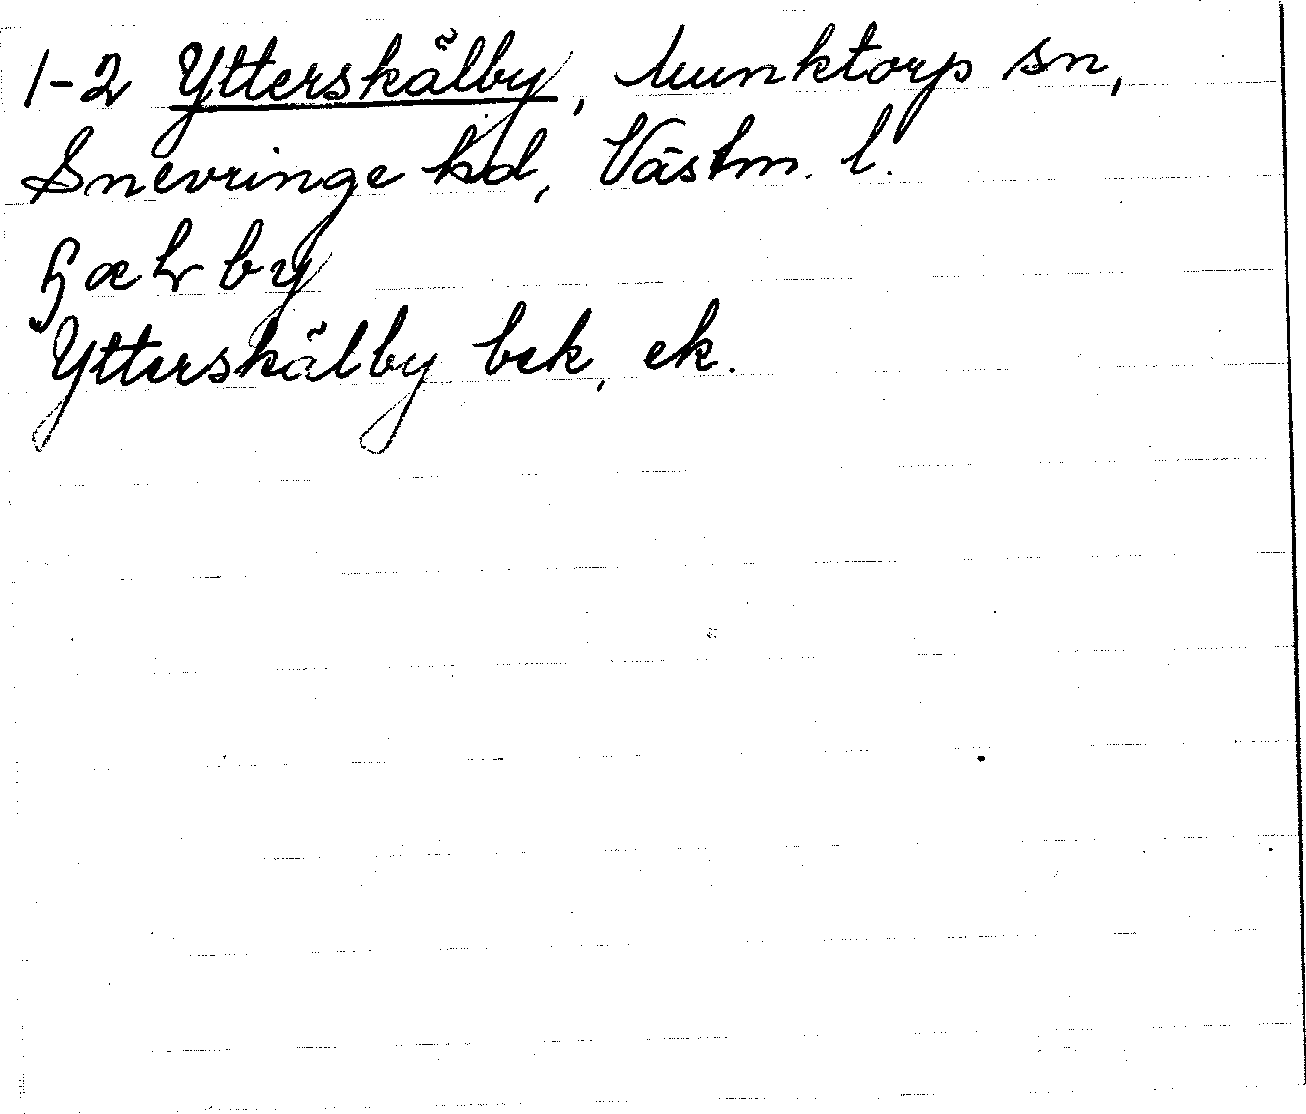 1-2 Ytterskälby, Munktorp sn,
Snevringe hd, Västm. l.
Ytterskälby bek, ek.